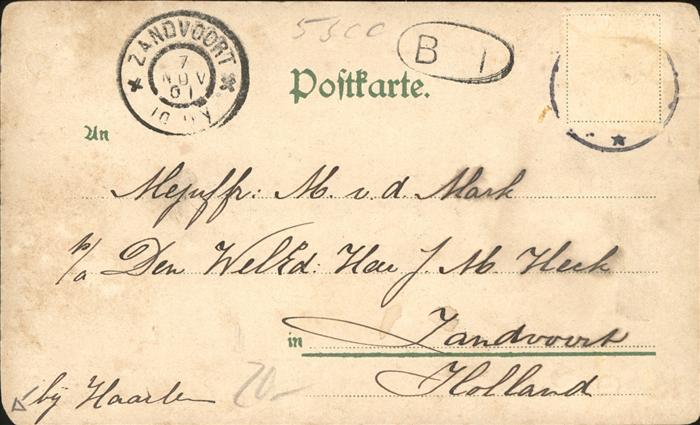 5300
ZANDVOORT
7
NOV
01
B 1
Postkarte.
An
Mejuffr: M. v. d. Mark
p/a Den WelEd: Heer J. M. Heck
in Zandvoort
Holland
bij Haarlem
20.-